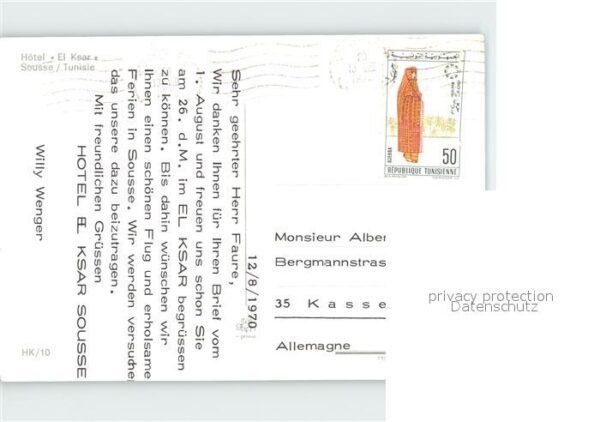 Hôtel « El Ksar »
Sousse / Tunisie
12/8/1970
Sehr geehrter Herr Faure,
Wir danken Ihnen für Ihren Brief vom
1. August und freuen uns schon Sie
am 26. d.M. im EL KSAR begrüssen
zu können. Bis dahin wünschen wir
Ihnen einen schönen Flug und erholsame
Ferien in Sousse. Wir werden versuchen
das unsere dazu beizutragen.
Mit freundlichen Grüssen
HOTEL EL KSAR SOUSSE
Willy Wenger
HK/10
50
DJERBA
RÉPUBLIQUE TUNISIENNE
Monsieur Alber
Bergmannstras
35 Kasse
Allemagne
privacy protection
Datenschutz